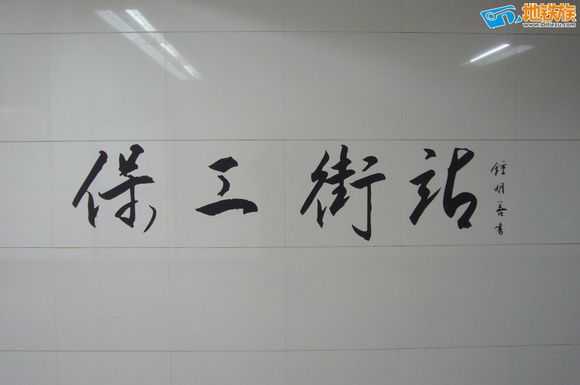 地铁族
www.ditiezu.com
保三街站
鍾明善書